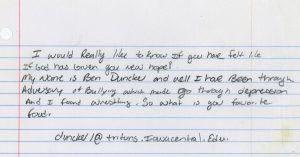 I would Really like to know If you have felt like
If God has Given you new hope?
My Name is Ben Dunckel and well I have Been through
Adversity of Bullying which made go through depression
And I found wrestling. So what is you favorite
food.
dunckel1@tritons.iowacentral.edu.